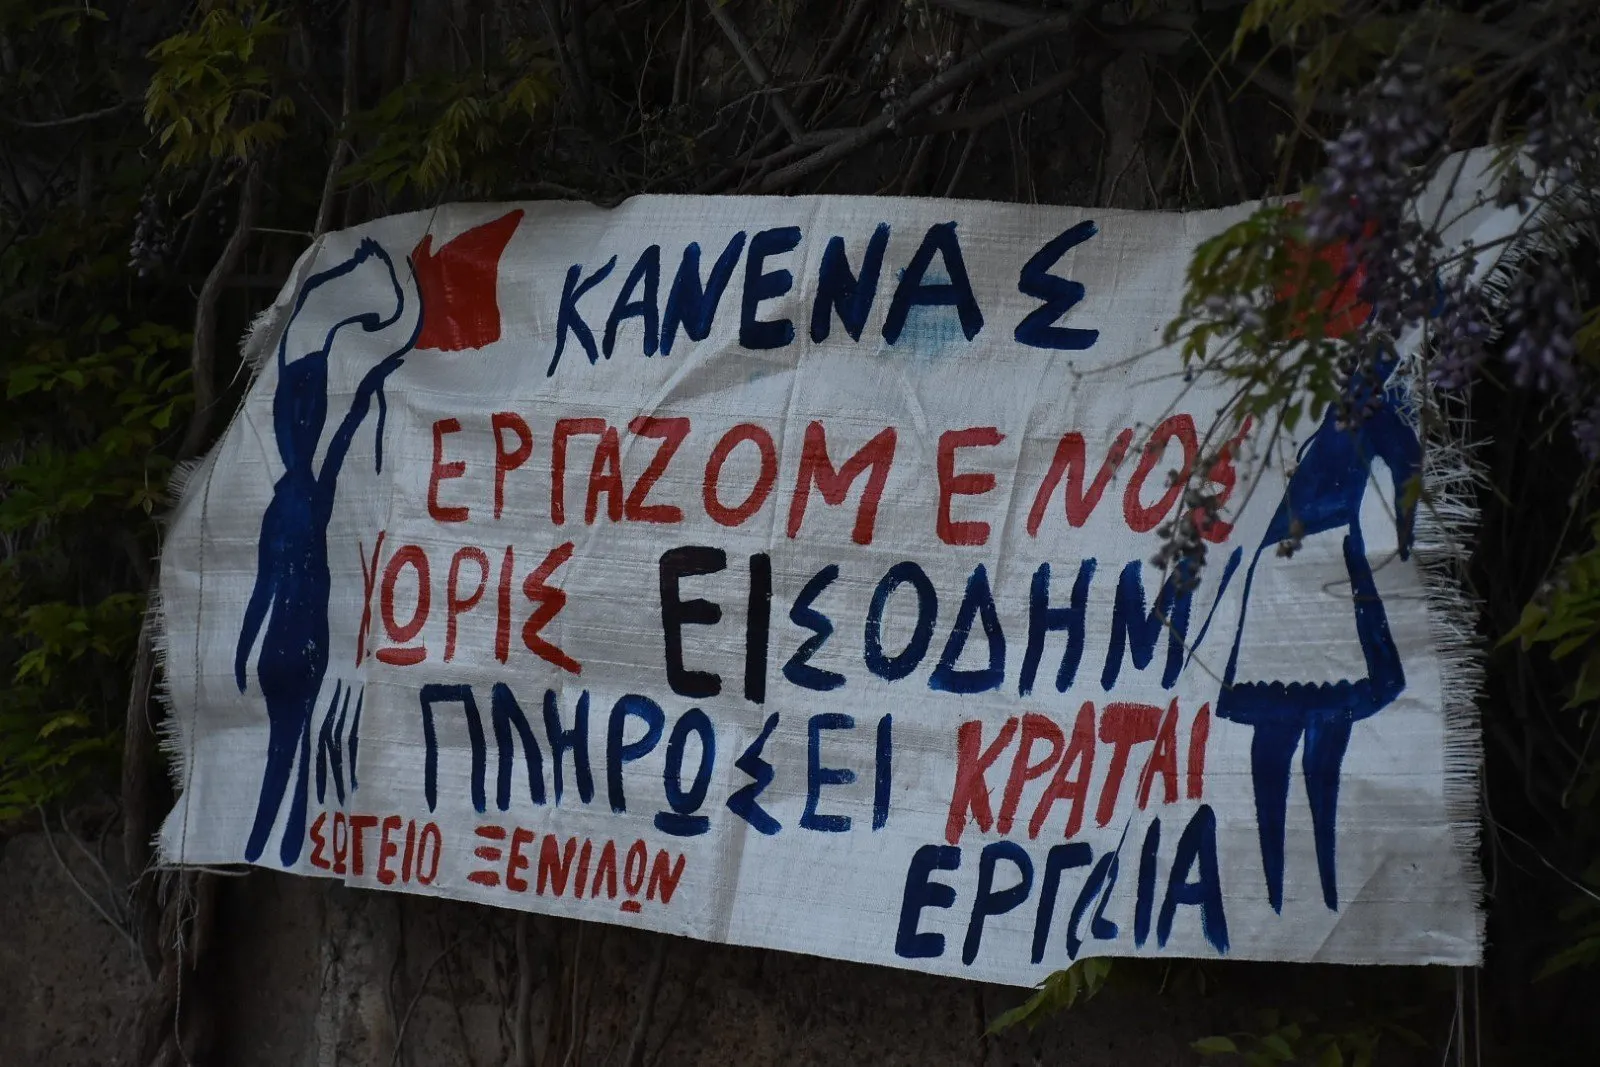 ΚΑΝΕΝΑΣ
ΕΡΓΑΖΟΜΕΝΟΣ
ΧΩΡΙΣ ΕΙΣΟΔΗΜ
ΝΙ ΠΛΗΡΩΣΕΙ ΚΡΑΤΑΙ
ΣΩΤΕΙΟ ΞΕΝΙΛΩΝ
ΕΡΓΔΙΑ